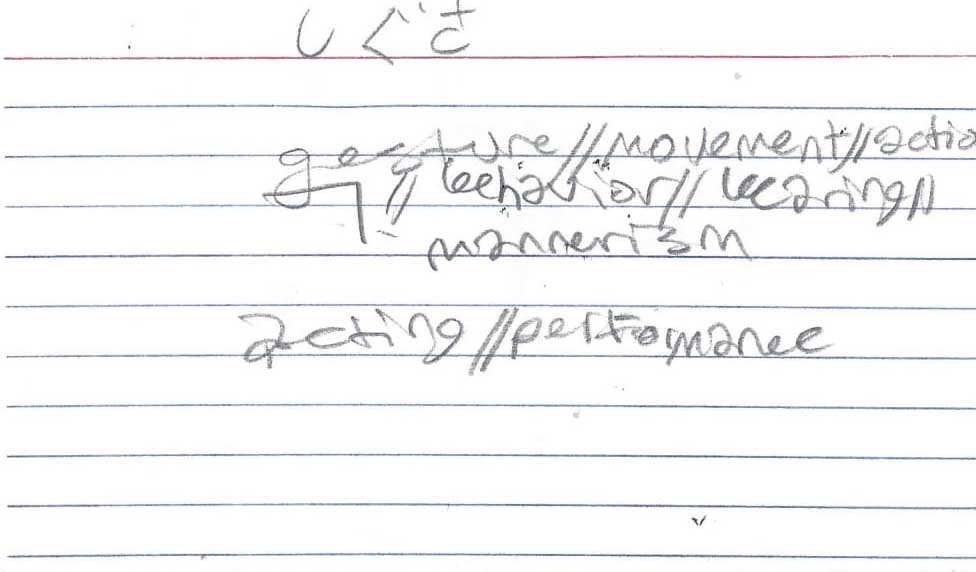 しぐさ
gesture//movement//actio
// behavior//bearing//
mannerism
acting//perfomance